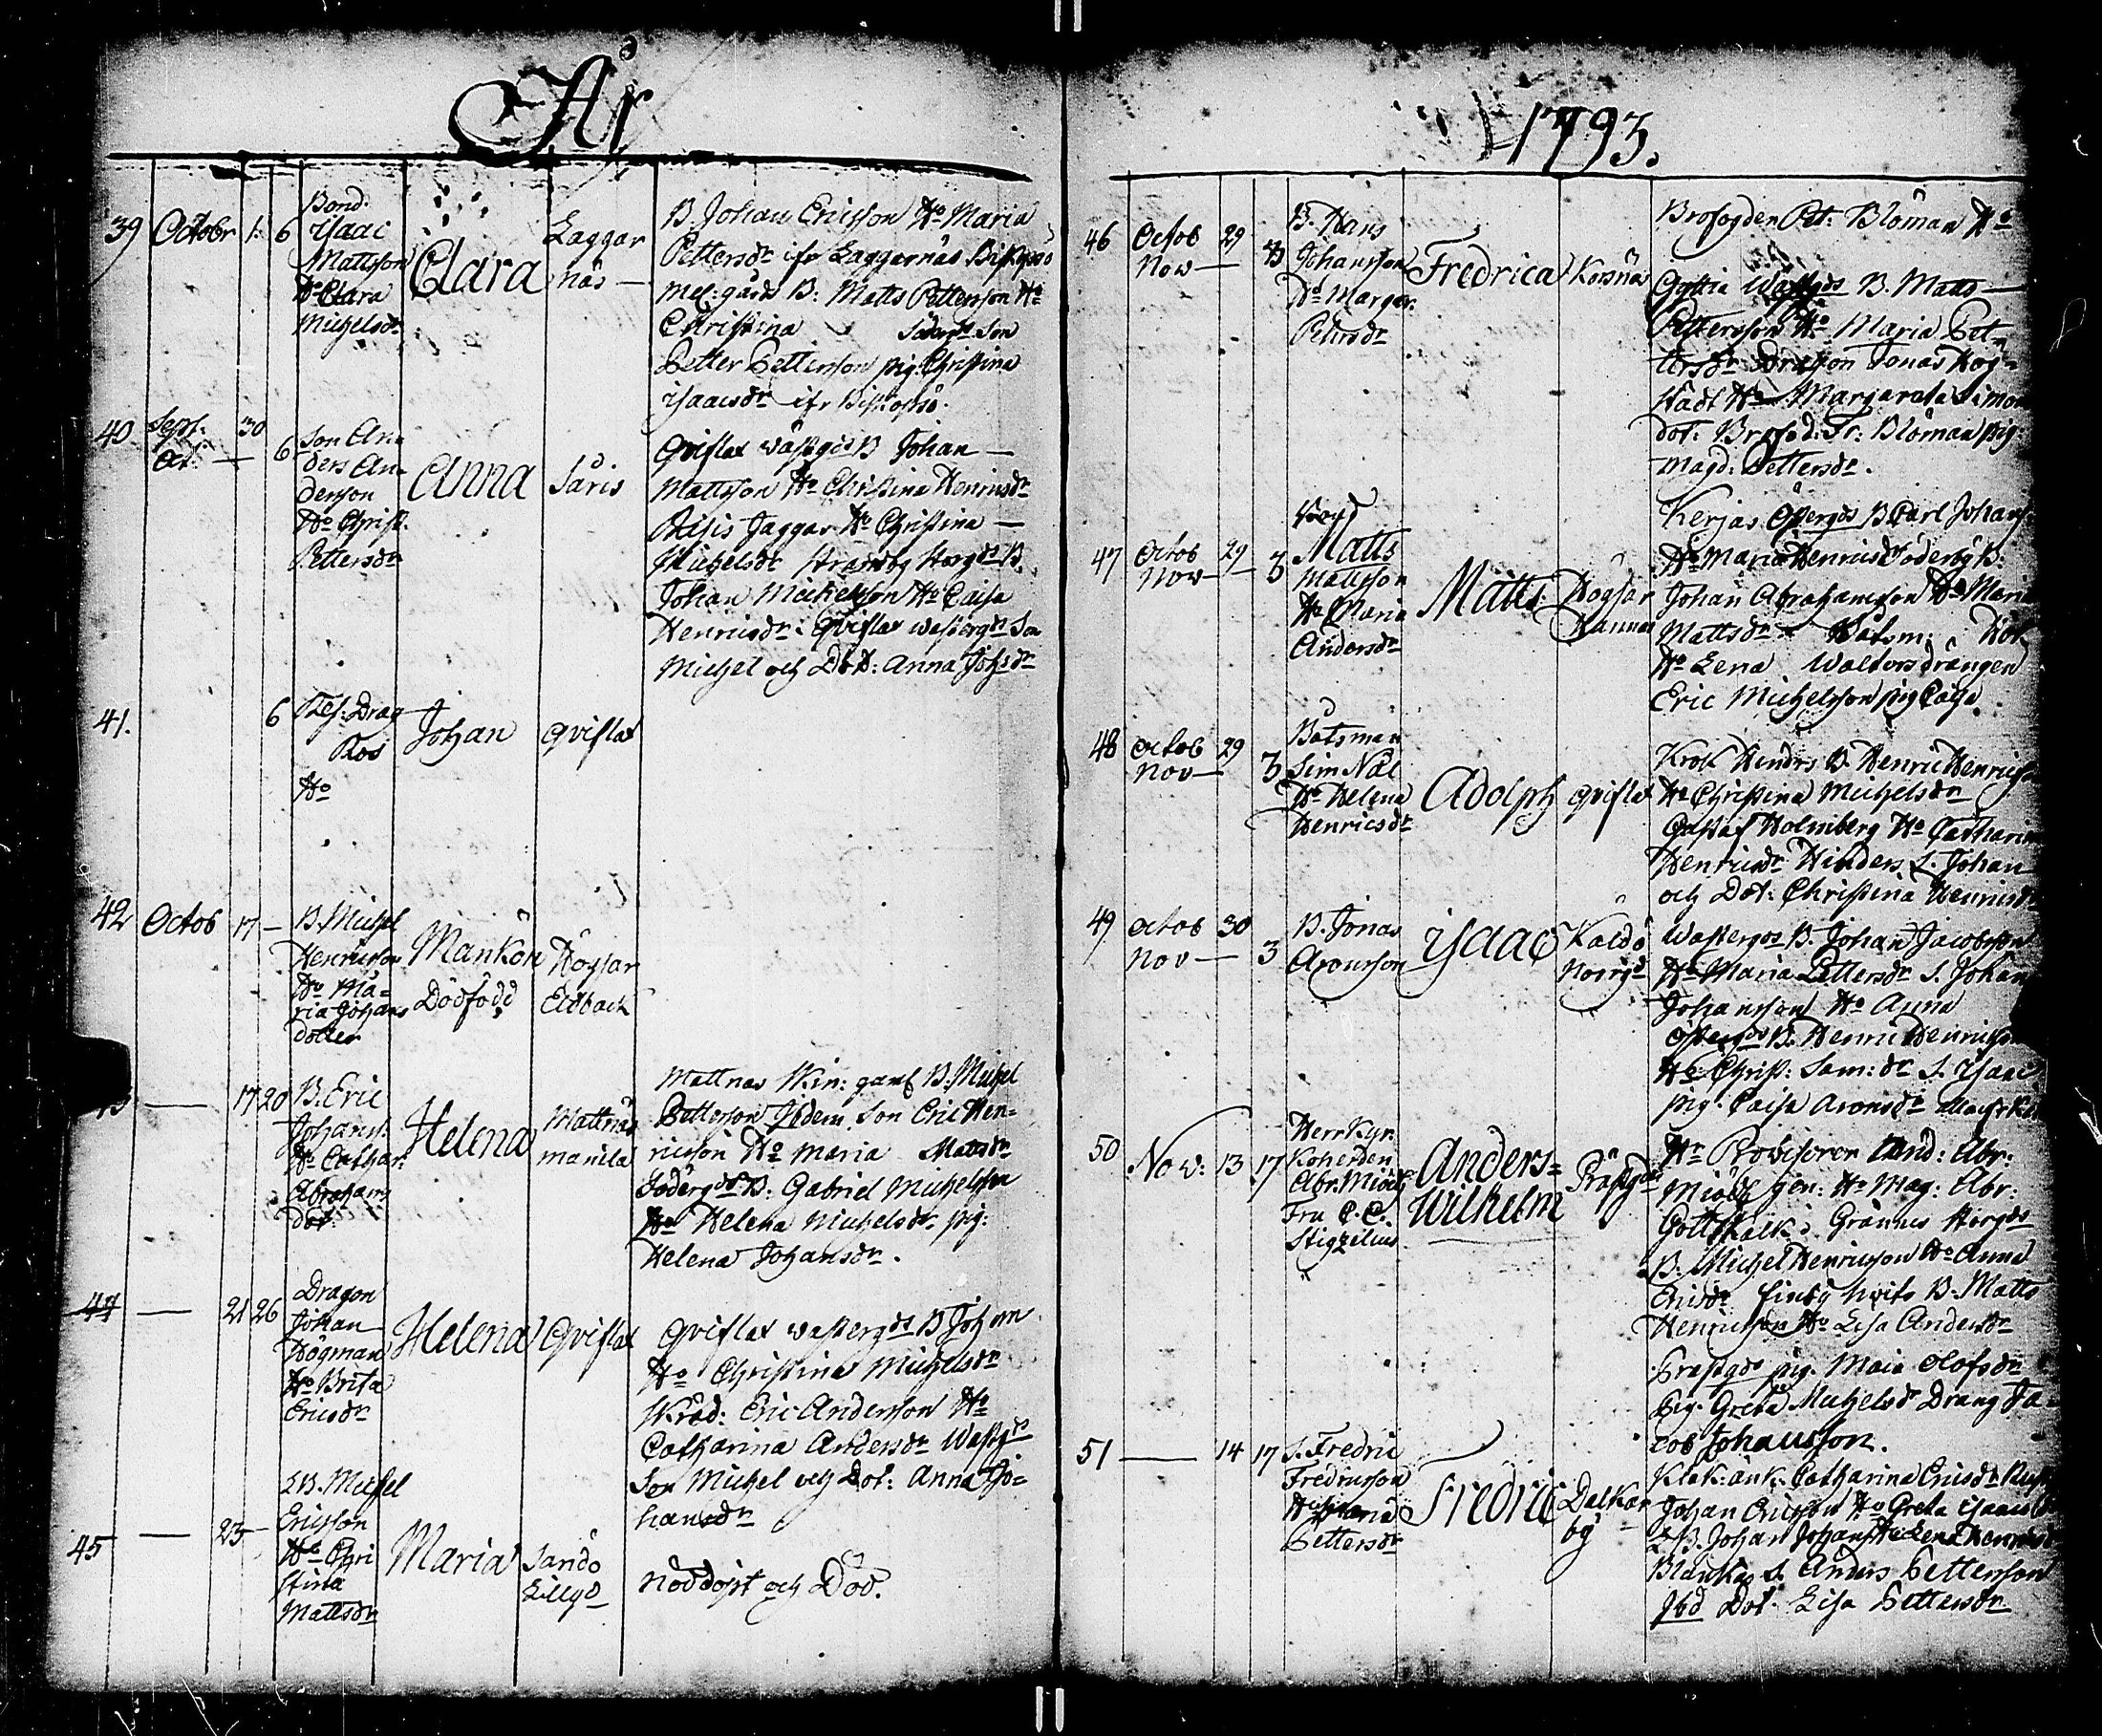 År
39 Octobr 1. 6
Bond.
Isaac
Mattsson
Ho Clara
Michelsdr
Clara
Laggar
näs —
B. Johan Ericsson Ho Maria
Pettersdr ifr Laggarnäs Biskopsö
mel: gårds B: Matts Pettersson Ho
Christina Söderg Son
Petter Pettersson pig. Christina
Isaacsdr ifr Biskopsö.
40 Sept. 30
Oct: — 6
Son An
ders An
dersson
Ho Christ.
Pettersdr
Anna
Såris
Qviflax Wästgds B Johan —
Mattsson Ho Christina Henricsdr
Jaggar Ho Christina —
Michelsdr Strandby Norgds B.
Johan Michelsson Ho Caisa
Henricsdr. Qviflax Wästergds Son
Michel och Dot: Anna Johsdr
41. 6
Drag
Ros
Ho
Johan
Qviflax
42 Octob 17 —
B. Michel
Henricsson
Ho Ma=
ria Johans
dotter
Mankön
Dödfödd
Högsar
Eldback
— 17 20
B. Eric
Johans.
Ho Cathar.
Abrahams
dot.
Helena
Mattnäs
manila
Mattnäs Kin: gamf B. Michel
Pettersson Ibdem. Son Eric Hen=
ricsson Ho Maria Mattsdr
Södergds B: Gabriel Michelsson
Ho Helena Michelsdr pig:
Helena Johansdr.
44 — 21 26
Dragon
Johan
Högman
Ho Brita
Ericsdr
Helena
Qviflax
Qviflax Wästergds B Johan
Ho Christina Michelsdr
Skräd: Eric Andersson Ho
Catharina Andersdr Wästgds
Son Michel och Dot: Anna Jo=
hansdr
45 — 23 —
B. Michel
Ericsson
Ho Chri
stina
Mattsdr
Maria
Sandö
Lillgd
Nöddöpt och Död.
1793.
46 Octob 29
Nov — 3
B. Hans
Johansson
Ho Margar.
Petersdr
Fredrica
Korsnäs
Brofogden Pet: Blöman Ho
Wästgds B. Matts —
Pettersson Ho Maria Pet=
tersdr Jonas Hög=
stadt Ho Margareta Simons
dot: Brofod: Fr: Blöman pig
Magd: Pettersdr.
47 Octob 29
Nov — 3
Bond
Matts
Mattsson
Ho Maria
Andersdr
Matts
Högsar
Hannas
Kerjas Östergds B Carl Johans
Ho Maria Henricsdr Söderby B:
Johan Abrahamsson Ho Maria
Mattsdr Båtsm:
Ho Lena Walters drängen
Eric Michelsson pig Caisa.
48 Octob 29
Nov — 3
Båtsman
Sim Nål
Ho Helena
Henricsdr
Adolph
Qviflax
Krok Hindrs B. Henric Henricss
Ho Christina Michelsdr
Gustaf Holmberg Ho Catharina
Henricsdr Hinders S. Johan
och Dot: Christina Henricsdr
49 Octob 30
Nov — 3
B. Jonas
Aronsson
Isaac
Kaldö
Norrgd
Wästergds B. Johan Jacobsson
Ho Maria Pettersdr S. Johan
Johansson Ho Anna
Östergds B. Henric Henricsson
Ho Christ: Sam:dr S. Isaac
pig. Caisa Aronsdr
50 Nov: 13 17
Herr Kyr
koherden
Abr. Miödh
Fru C. C.
Stigzelius
Anders=
Wilhelm
Prästgdn
Hr Provisoren And: Abr:
Miödh gen: Ho Mag: Abr:
Gottskalk. Grännes Norrgds
B. Michel Henricsson Ho Anna
Ericsdr Finby hvits B. Matts
Henricsson Ho Lisa Andersdr
Prästgds pig. Maia Olofsdr
Pig. Greta Michelsdr Dräng Ja=
cob Johansson.
51 — 14 17
S. Fredric
Fredricsson
Ho Maria
Pettersdr
Fredric
Dalkar
by
Klok: änk. Catharina Ericsdr
Johan Ericsson Ho Greta Isaacsdr
B. Johan Johans Ho Lena Henricsdr
S. Anders Pettersson
Ibd Dot. Lisa Pettersdr